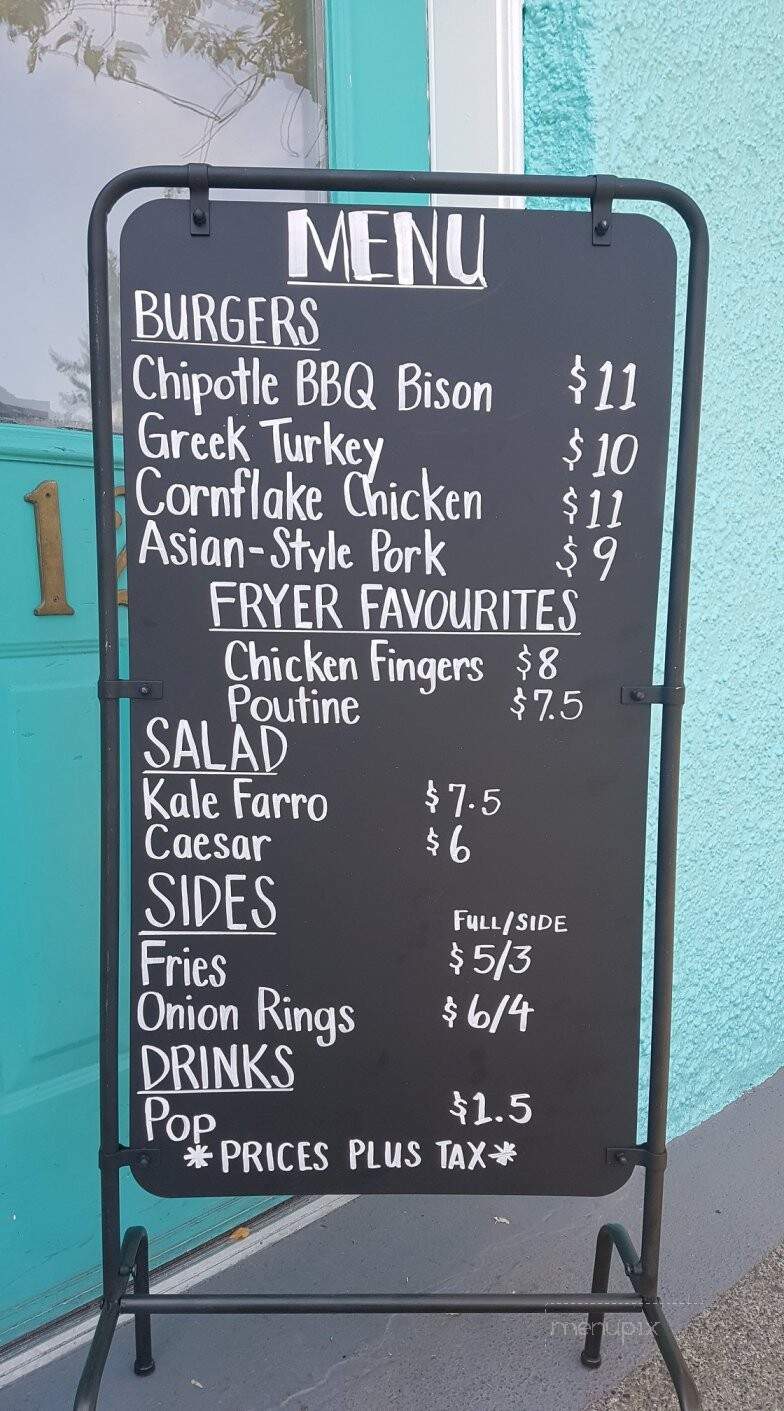 MENU
BURGERS
Chipotle BBQ Bison $11
Greek Turkey $10
Cornflake Chicken $11
Asian-Style Pork $9
FRYER FAVOURITES
Chicken Fingers $8
Poutine $7.5
SALAD
Kale Farro $7.5
Caesar $6
SIDES FULL/SIDE
Fries $5/3
Onion Rings $6/4
DRINKS
Pop $1.5
*PRICES PLUS TAX*
1
menupix